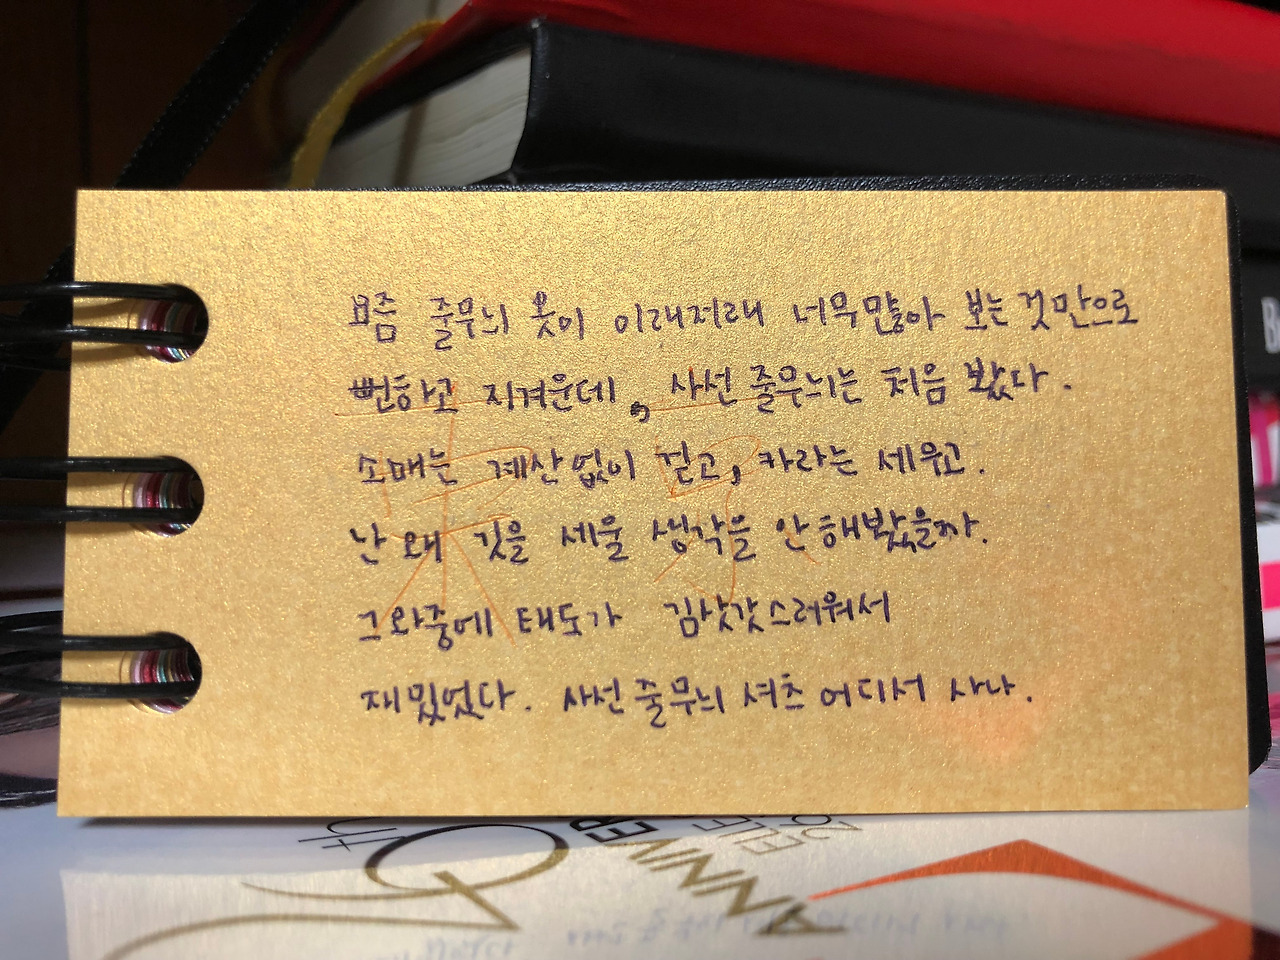 요즘 줄무늬 옷이 이래저래 너무많아 보는것만으로
뻔하고 지겨운데, 사선 줄무늬는 처음 봤다.
소매는 계산없이 걷고, 카라는 세우고.
난 왜 깃을 세울 생각을 안 해봤을까.
그와중에 태도가 김삿갓스러워서
재밌었다. 사선 줄무늬 셔츠 어디서 사나.